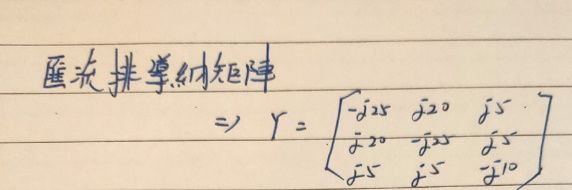 匯流排導納矩陣
⇒ Y = [ -j25 j20 j5
j20 -j25 j5
j5 j5 -j10 ]